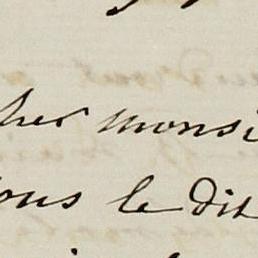 her monsi
ous le dit